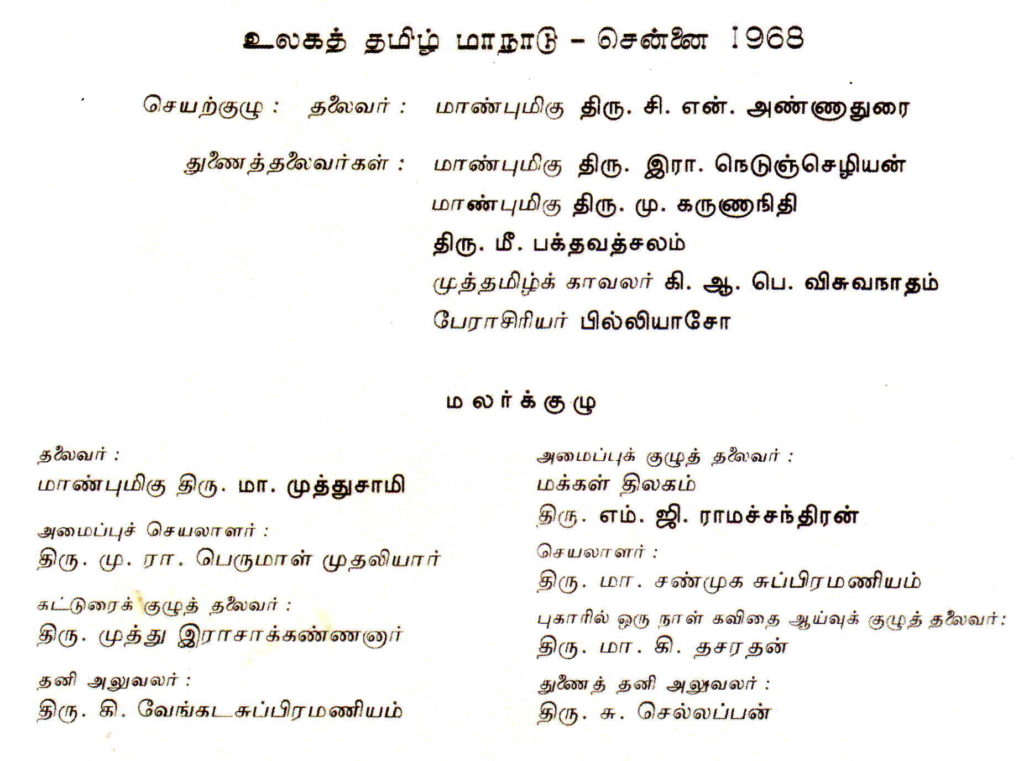 உலகத் தமிழ் மாநாடு – சென்னை 1968
செயற்குழு : தலைவர் : மாண்புமிகு திரு. சி. என். அண்ணாதுரை
துணைத்தலைவர்கள் : மாண்புமிகு திரு. இரா. நெடுஞ்செழியன்
மாண்புமிகு திரு. மு. கருணாநிதி
திரு. மீ. பக்தவத்சலம்
முத்தமிழ்க் காவலர் கி. ஆ. பெ. விசுவநாதம்
பேராசிரியர் பில்லியாசோ
மலர்க்குழு
தலைவர் :
மாண்புமிகு திரு. மா. முத்துசாமி
அமைப்புச் செயலாளர் :
திரு. மு. ரா. பெருமாள் முதலியார்
கட்டுரைக் குழுத் தலைவர் :
திரு. முத்து இராசாக்கண்ணனார்
தனி அலுவலர் :
திரு. கி. வேங்கடசுப்பிரமணியம்
அமைப்புக் குழுத் தலைவர் :
மக்கள் திலகம்
திரு. எம். ஜி. ராமச்சந்திரன்
செயலாளர் :
திரு. மா. சண்முக சுப்பிரமணியம்
புகாரில் ஒரு நாள் கவிதை ஆய்வுக் குழுத் தலைவர்:
திரு. மா. கி. தசரதன்
துணைத் தனி அலுவலர் :
திரு. சு. செல்லப்பன்